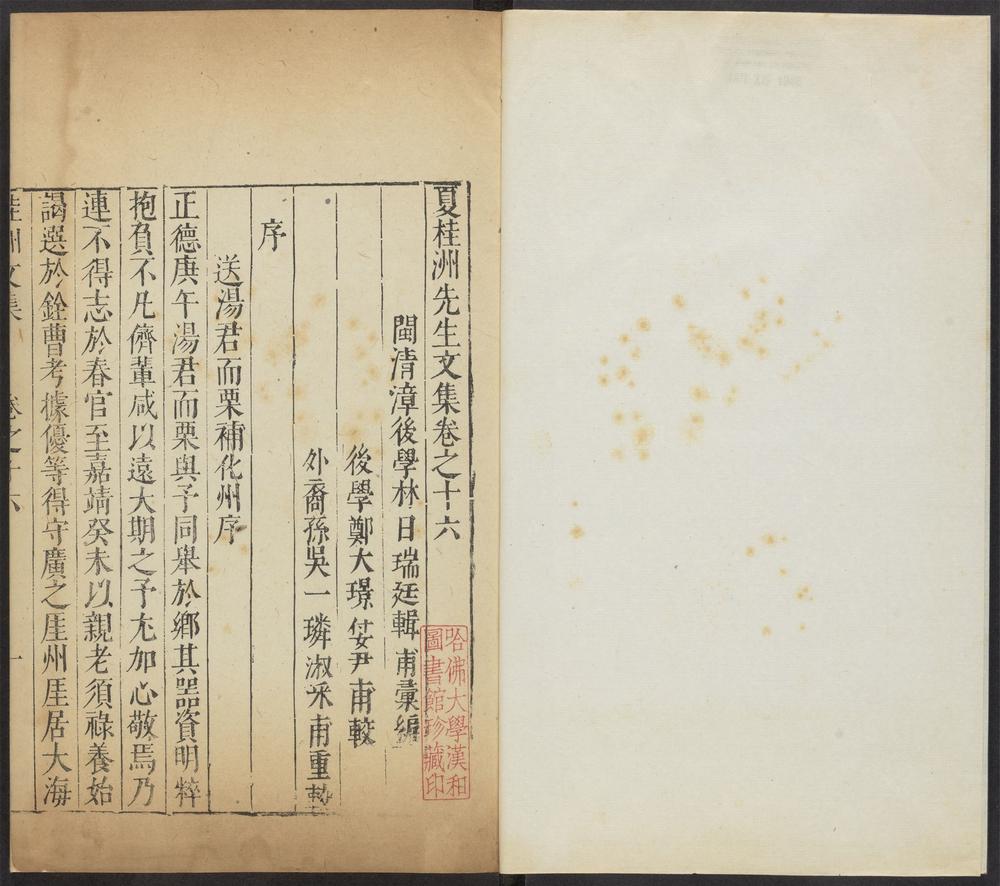 夏桂洲先生文集卷之十六
閩清漳後學林日瑞廷輯甫彙編
後學鄭大璟尹甫較
外裔孫吳一璘淑采甫重
序
送湯君而栗補化州序
正德庚午湯君而栗與予同舉於鄉其器資明粹
抱負不凡儕輩咸以遠大期之予尤加心敬焉乃
連不得志於春官至嘉靖癸未以親老須祿養始
謁選於銓曹考據優等得守廣之厓州厓居大海
桂洲文集 卷之十六 一
哈佛大學漢和
圖書館珍藏印